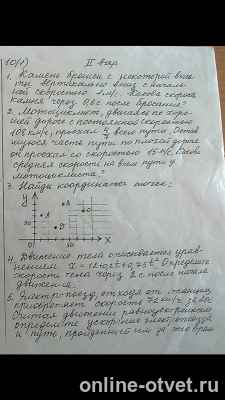 10(1) II вар
1. Камень брошен с некоторой высо-
ты вертикально вниз с началь-
ной скоростью 1м/с. Какова скорость
камня через 0,6с после бросания?
2. Мотоциклист, двигаясь по хоро-
шей дороге с постоянной скоростью
108 км/ч, проехал 4/7 всего пути. Остав
шуюся часть пути по плохой дороге
он проехал со скоростью 15 м/с. Какова
средняя скорость на всем пути у
мотоциклиста?
3. Найди координаты точек:
y
B
A C
20 D
0 x
4. Движение тела описывается урав-
нением x = 12+2t+0,75t². Определите
скорость тела через 2 с после начала
движения.
5. Электропоезд, отходя от станции,
приобретает скорость 72 км/ч за 20с.
Считая движение равноускоренным
определите ускорение электропоезда
и путь, пройденный им за это время
online-otvet.ru